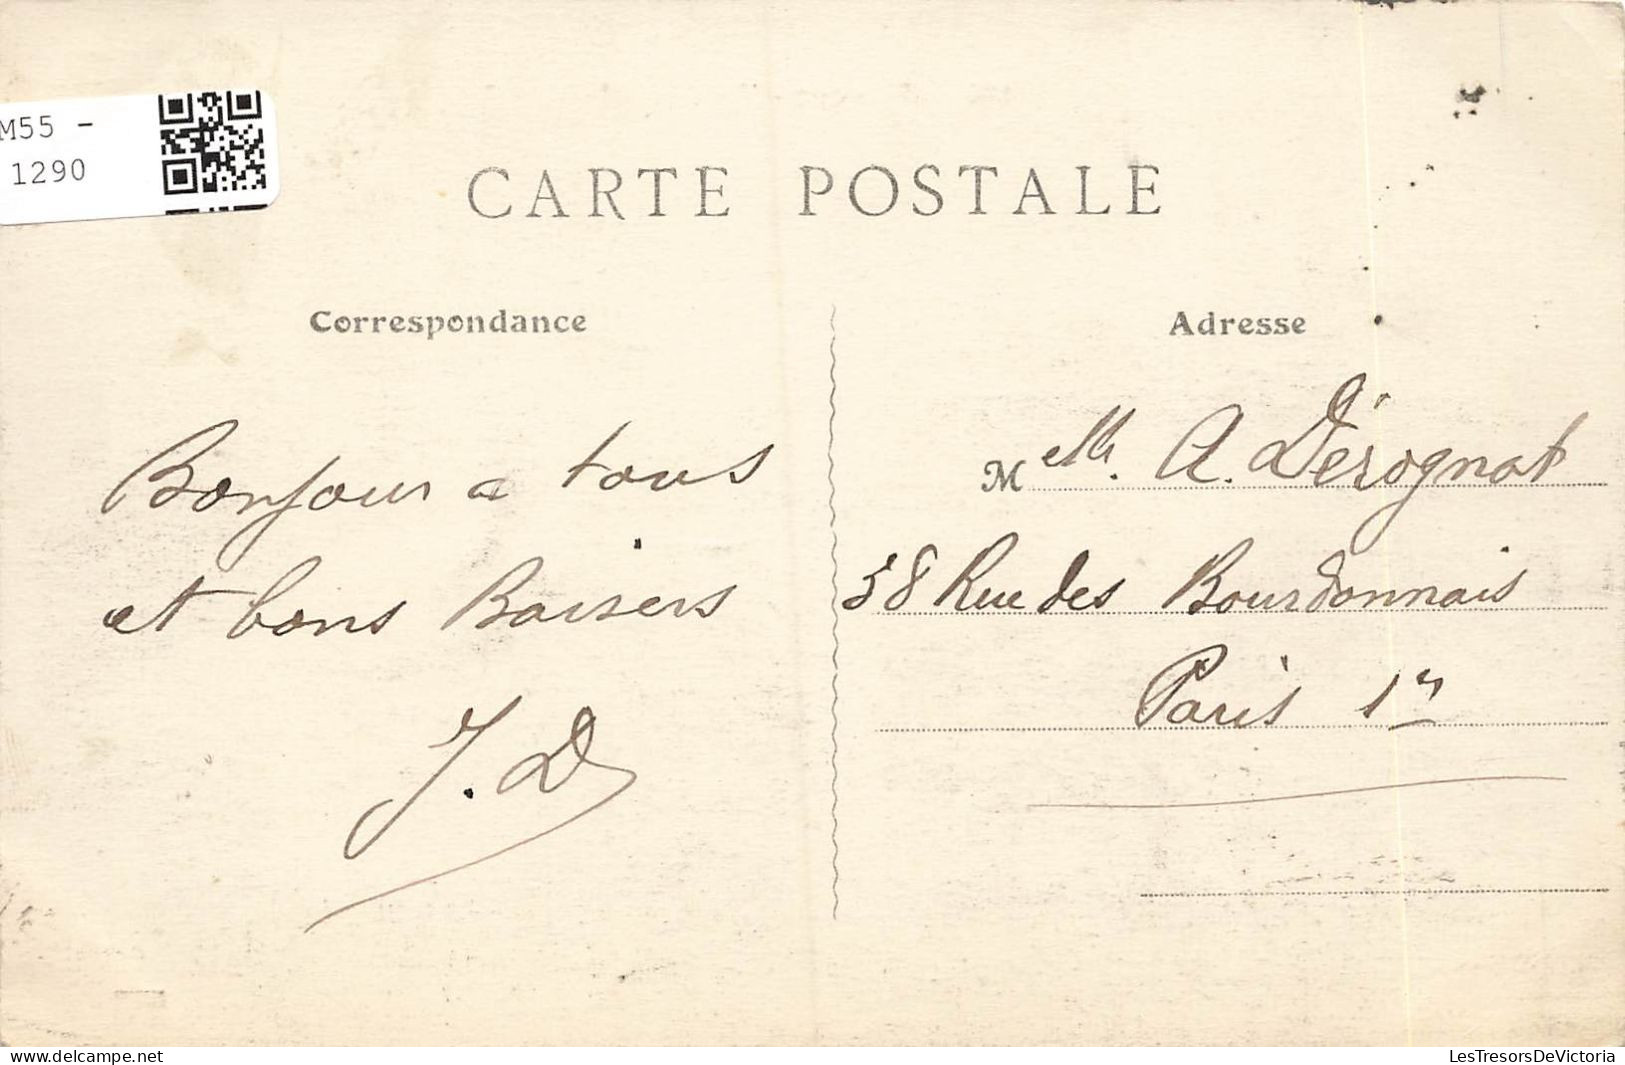 M55 -
1290
CARTE POSTALE
Correspondance
Bonjour a tous
et bons Baisers
J. D
Adresse
Melle. A. Dérognat
38 Rue des Bourdonnais
Paris 1er
delcampe.net
LesTresorsDeVictoria